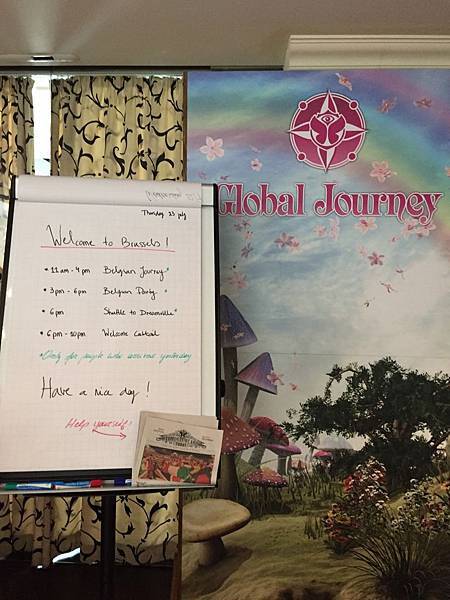 Thursday 23 july
Welcome to Brussels!
• 11 am - 4 pm Belgian Journey*
• 3 pm - 6 pm Belgian Party *
• 6 pm Shuttle to Dreamville*
• 6 pm - 10 pm Welcome Cocktail
* Only for people who arrive yesterday
Have a nice day!
Help yourself!
Global Journey